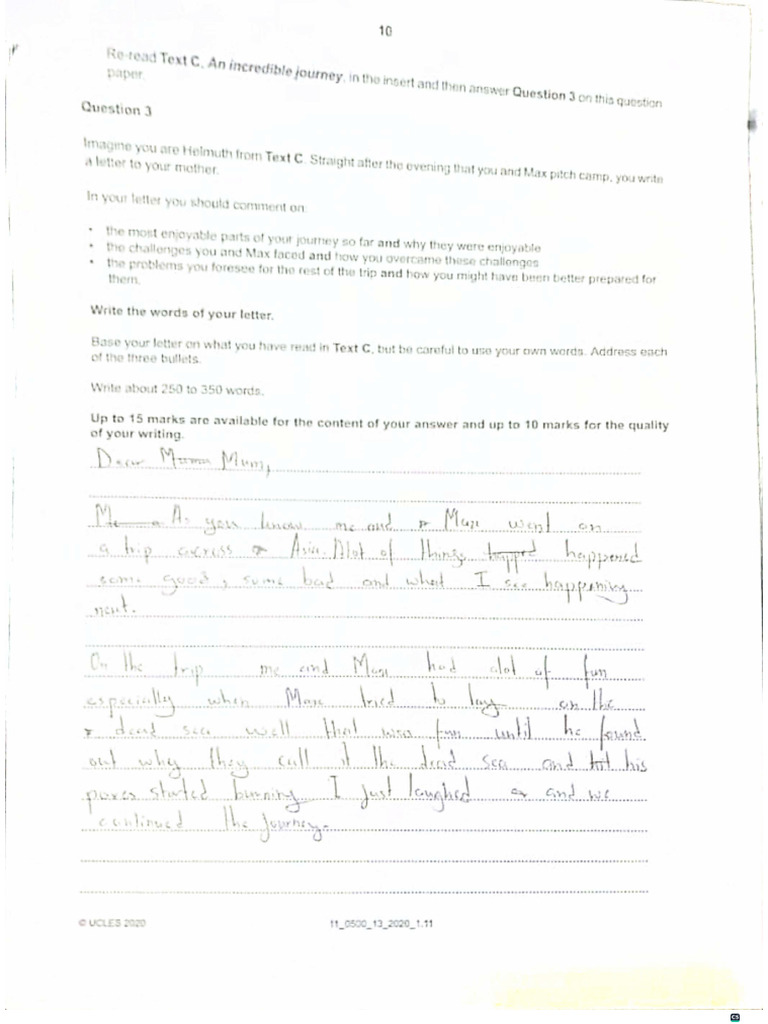 10
Re-read Text C, An incredible journey, in the insert and then answer Question 3 on this question
paper.
Question 3
Imagine you are Helmuth from Text C. Straight after the evening that you and Max pitch camp, you write
a letter to your mother.
In your letter you should comment on:
• the most enjoyable parts of your journey so far and why they were enjoyable
• the challenges you and Max faced and how you overcame these challenges
• the problems you foresee for the rest of the trip and how you might have been better prepared for
them.
Write the words of your letter.
Base your letter on what you have read in Text C, but be careful to use your own words. Address each
of the three bullets.
Write about 250 to 350 words.
Up to 15 marks are available for the content of your answer and up to 10 marks for the quality
of your writing.
Dear Mum,
As you know me and Max went on
a trip across Asia. Alot of things happened
some good, some bad and what I see happening
next.
On the trip me and Max had alot of fun
especially when Max tried to lay on the
dead sea well that was fun until he found
out why they call it the dead sea and his
pores started burning I just laughed and we
continued the journey.
© UCLES 2020
11_0500_13_2020_1.11
CS